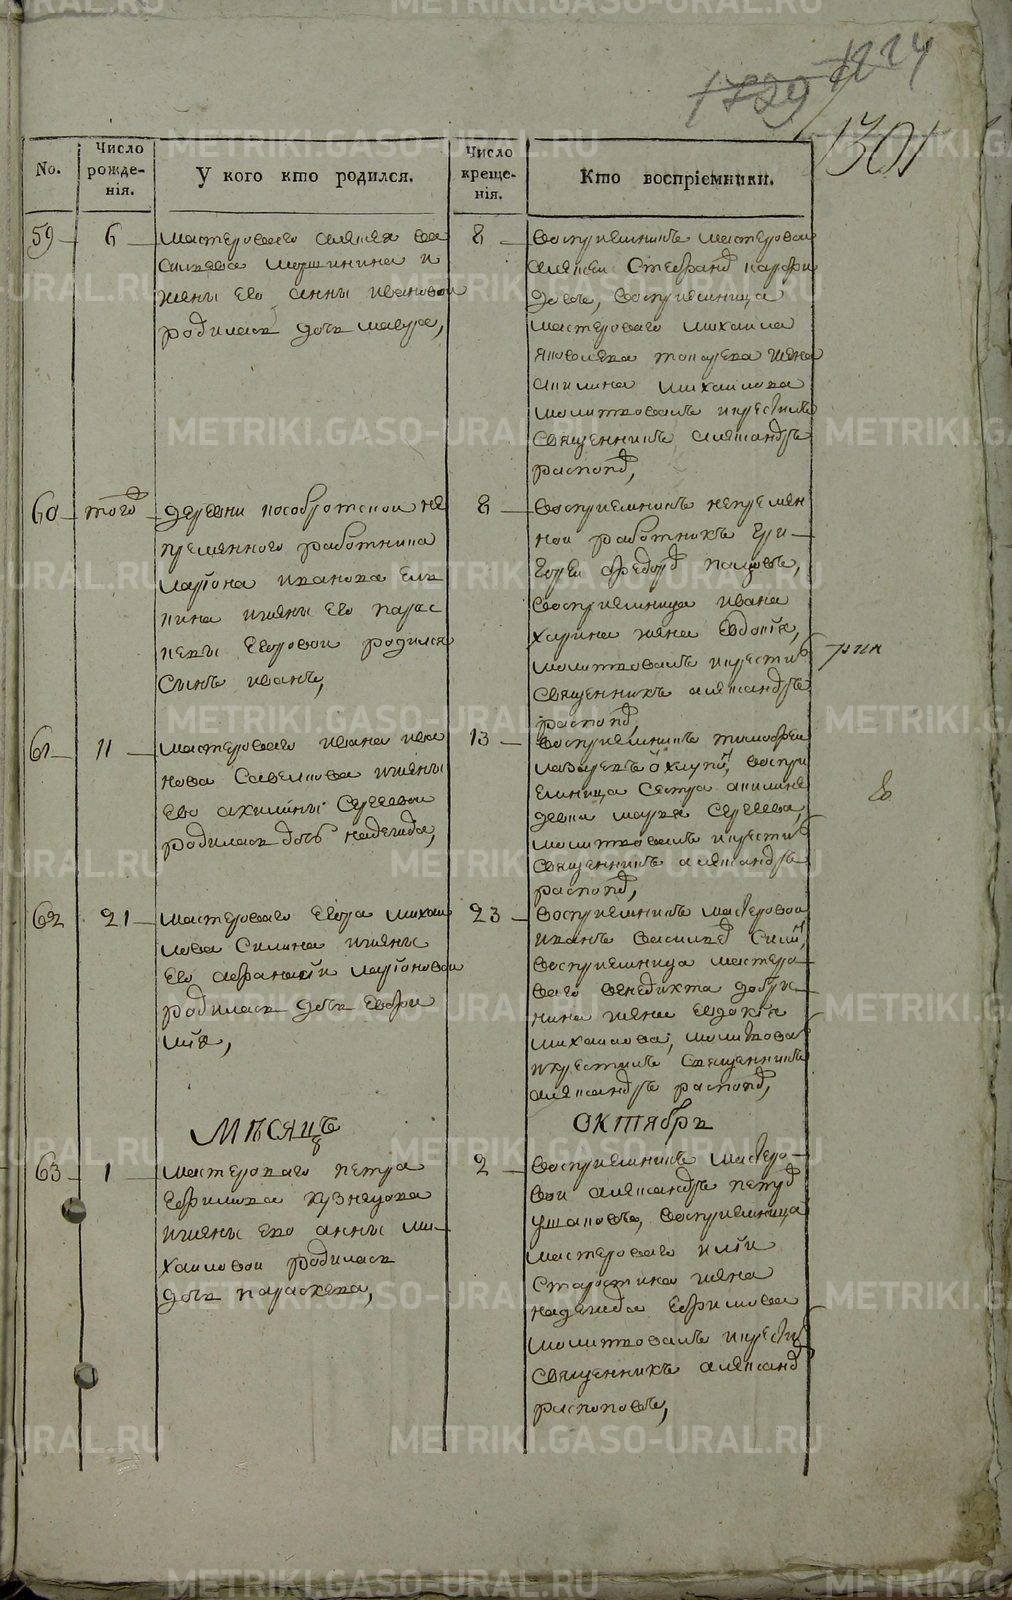 1729
1224
1301
No.
Число рожде-нія.
У кого кто родился.
Число креще-нія.
Кто воспріемники.
59
6
мастероваго алексея ва
силева мършинина и
жены его анны ивановои
родилась дочь мавра,
8
воспріемникъ мастеровои
алексеи
довъ, воспріемница
мастероваго михаила
яковлева токарева жена
акилина михаилова
молитвовалъ икрестилъ
священникъ александръ
распопов,
60
того
деревни кособродскои не
пременного работника
лариона иванова елк
кина ижены его парас
кевы егоровои родился
сынъ иванъ,
8
воспріемникъ непремен
нои работникъ гри
гореи федоров палцовъ,
воспріемница ивана
харина жена евдокія,
молитвовалъ икрестил
священникъ александръ
распопов,
рин
61
11
мастероваго ивана ива
нова савелкова ижены
его акилины сергеевои
родилась дочь надежда,
13
воспріемникъ тимофеи
лазаревъ охлупин, воспри
емница сестра акилине
девка марья сергеева,
молитвовалъ икрестил
священникъ александръ
распопов,
62
21
мастероваго егора михаи
лова силина ижены
его афанасіи ларіоновои
родилась дочь евфи
мія,
23
воспріемникъ мастеровои
иванъ василев силин,
воспріемница мастеро
ваго венедикта добри
нина жена евдокія
михаилова, молитвовал
икрестилъ священникъ
александръ распопов,
Мѣсяцъ
октябрь
63
1
мастероваго петра
ефимова кузнецова
ижены его анны ми
хаиловои родилась
дочь параскева,
2
воспріемникъ мастеро
вои александръ петров
ушаковъ, воспріемница
мастероваго иліи
старостина жена
надежда ефимова
молитвовалъ икрестил
священникъ александ
распоповъ,
METRIKI.GASO-URAL.RU